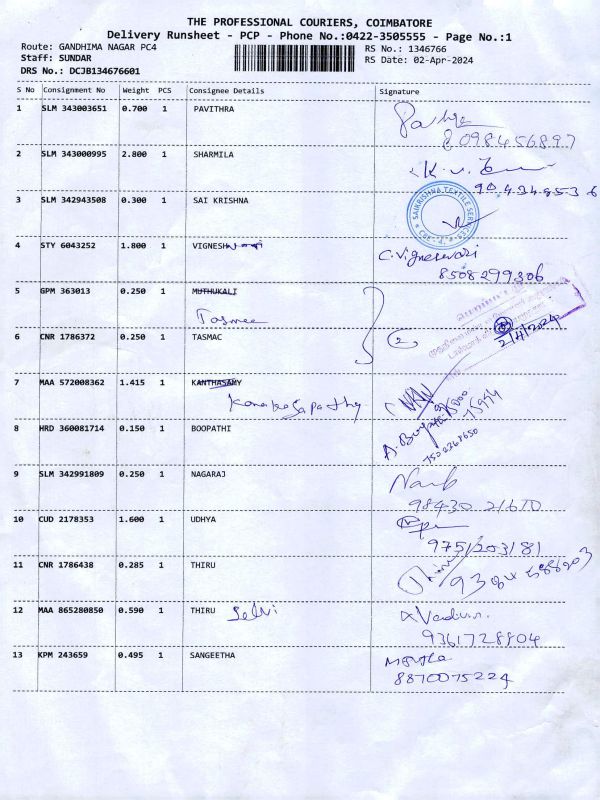 THE PROFESSIONAL COURIERS, COIMBATORE
Delivery Runsheet - PCP - Phone No.:0422-3505555 - Page No.:1
Route: GANDHIMA NAGAR PC4
RS No.: 1346766
Staff: SUNDAR
RS Date: 02-Apr-2024
DRS No.: DCJB134676601
S No Consignment No Weight PCS Consignee Details Signature
1 SLM 343003651 0.700 1 PAVITHRA
8098456897
2 SLM 343000995 2.800 1 SHARMILA
3 SLM 342943508 0.300 1 SAI KRISHNA
SAIKRISHNA TEXTILE
4 STY 6043252 1.800 1 VIGNESH
C. Vigneswari
8508299306
5 GPM 363013 0.250 1 MUTHUKALI
Tasmee
6 CNR 1786372 0.250 1 TASMAC
2/4/2024
7 MAA 572008362 1.415 1 KANTHASAMY
8 HRD 360081714 0.150 1 BOOPATHI
9 SLM 342991809 0.250 1 NAGARAJ
98430 21670
10 CUD 2178353 1.600 1 UDHYA
9751203181
11 CNR 1786438 0.285 1 THIRU
12 MAA 865280850 0.590 1 THIRU Selvi
9361728804
13 KPM 243659 0.495 1 SANGEETHA
8870075224